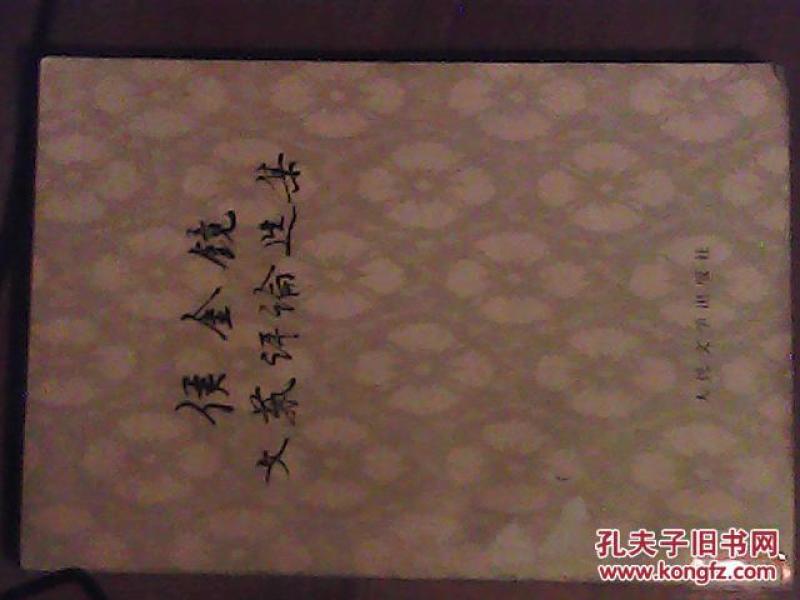 侯金镜
文艺评论选集
人民文学出版社
孔夫子旧书网
www.kongfz.com